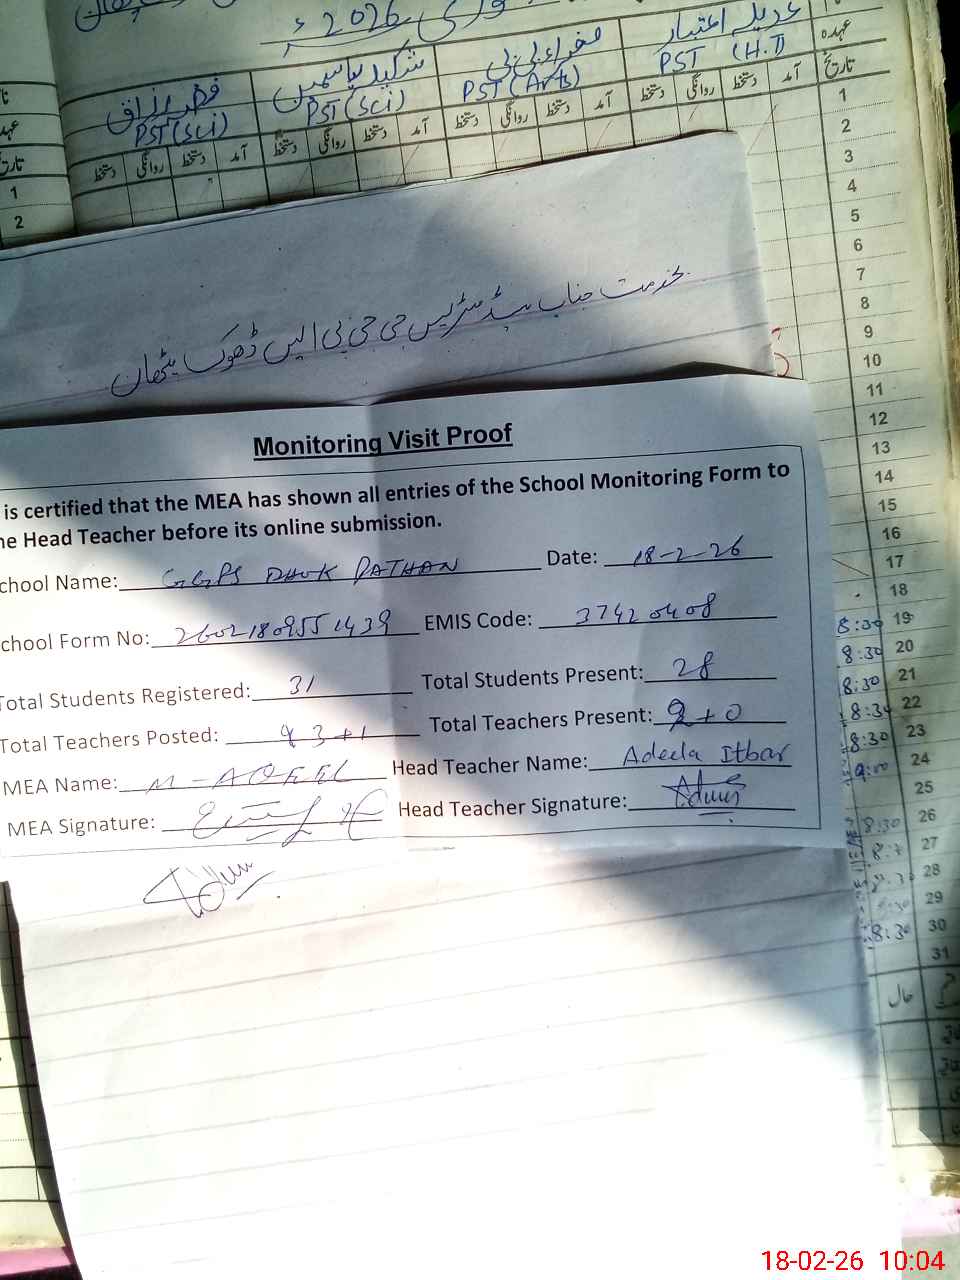 2026
عدیلہ اعتبار
PST (H.T)
صغراء بی بی
PST (Arts)
شکیلہ یاسمین
PST (Sci)
PST (Sci)
عہدہ
تاریخ
آمد دستخط روانگی دستخط آمد دستخط روانگی دستخط آمد دستخط روانگی دستخط آمد دستخط روانگی دستخط
1
2
1
2
3
4
5
6
7
8
9
10
11
12
13
14
15
16
17
18
8:30 19
8:30 20
8:30 21
8:30 22
8:30 23
9:00 24
25
8:30 26
27
28
29
8:30 30
31
حال
بخدمت جناب ہیڈ مسٹریس جی جی پی ایس ڈھوک پٹھان
Monitoring Visit Proof
is certified that the MEA has shown all entries of the School Monitoring Form to
he Head Teacher before its online submission.
chool Name: GGPS DHOK PATHAN Date: 18-2-26
chool Form No: 26021809551439 EMIS Code: 37420408
Total Students Registered: 31 Total Students Present: 28
Total Teachers Posted: 3+1 Total Teachers Present: 2+0
MEA Name: M-AQEEL Head Teacher Name: Adeela Itbar
MEA Signature: Head Teacher Signature:
18-02-26 10:04